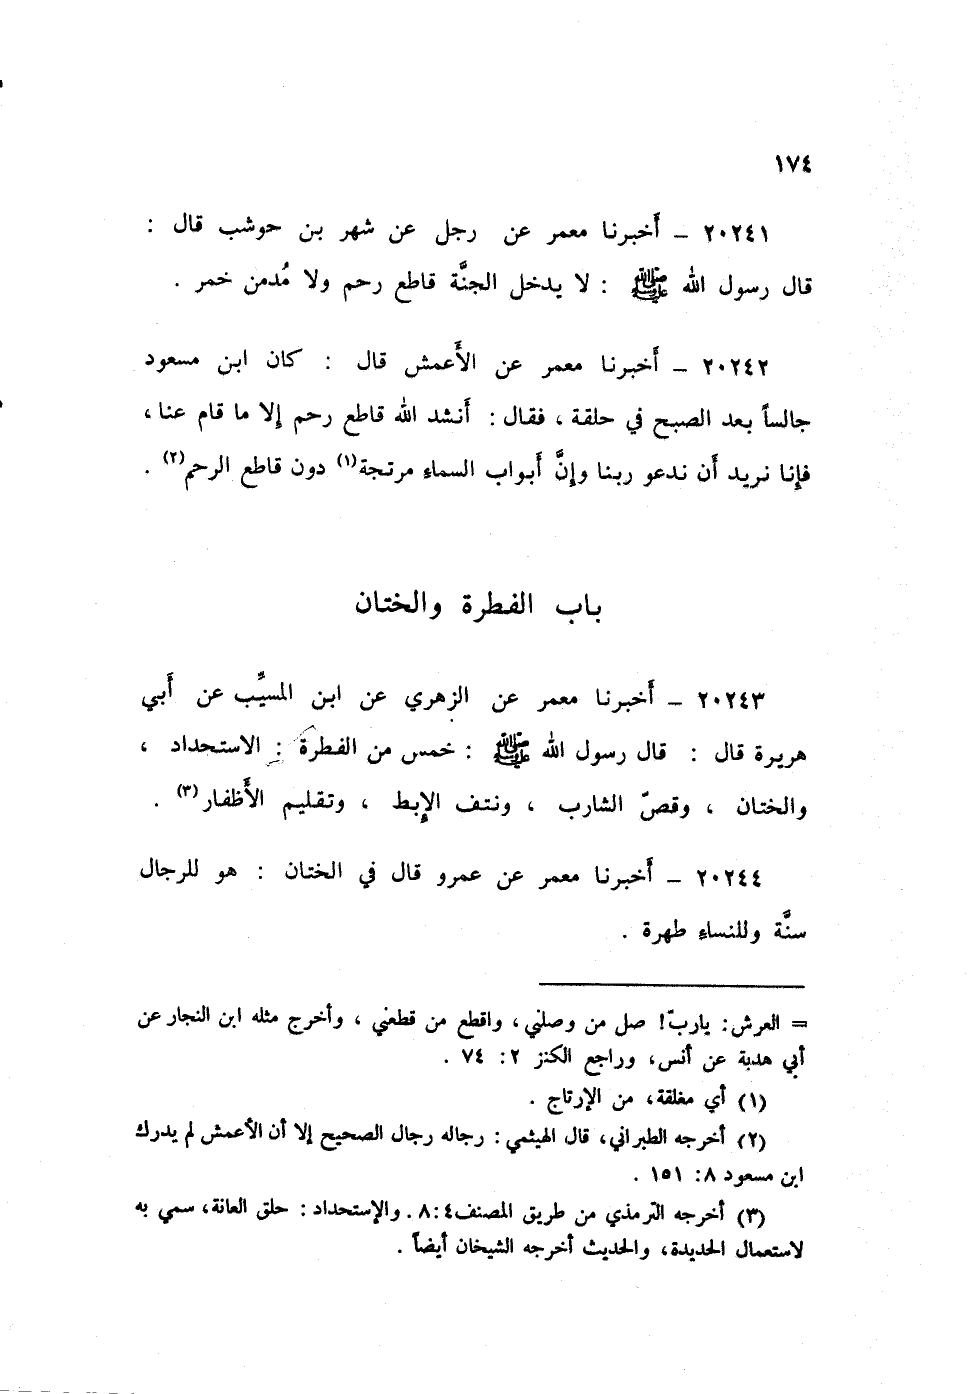 ١٧٤
٢٠٢٤١ ــ أَخبرنا معمر عن رجل عن شهر بن حوشب قال :
قال رسول الله ﷺ : لا يدخل الجنَّة قاطع رحم ولا مُدمن خمر .
٢٠٢٤٢ ــ أَخبرنا معمر عن الأَعمش قال : كان ابن مسعود
جالساً بعد الصبح في حلقة ، فقال : أَنشد الله قاطع رحم إلا ما قام عنا ،
فإِنا نريد أَن ندعو ربنا وإِنَّ أَبواب السماءِ مرتجة(١) دون قاطع الرحم(٢) .
باب الفطرة والختان
٢٠٢٤٣ ــ أَخبرنا معمر عن الزهري عن ابن المسيَّب عن أَبي
هريرة قال : قال رسول الله ﷺ : خمس من الفطرة : الاستحداد ،
والختان ، وقصّ الشارب ، ونتف الإِبط ، وتقليم الأَظفار(٣) .
٢٠٢٤٤ ــ أَخبرنا معمر عن عمرو قال في الختان : هو للرجال
سنَّة وللنساءِ طهرة .
= العرش : يارب! صل من وصلني ، واقطع من قطعني ، وأخرج مثله ابن النجار عن
أبي هدبة عن أنس ، وراجع الكنز ٢ : ٧٤ .
(١) أي مغلقة ، من الإرتاج .
(٢) أخرجه الطبراني ، قال الهيثمي : رجاله رجال الصحيح إلا أن الأعمش لم يدرك
ابن مسعود ٨ : ١٥١ .
(٣) أخرجه الترمذي من طريق المصنف ٤ : ٨ . والإستحداد : حلق العانة ، سمي به
لاستعمال الحديدة ، والحديث أخرجه الشيخان أيضاً .